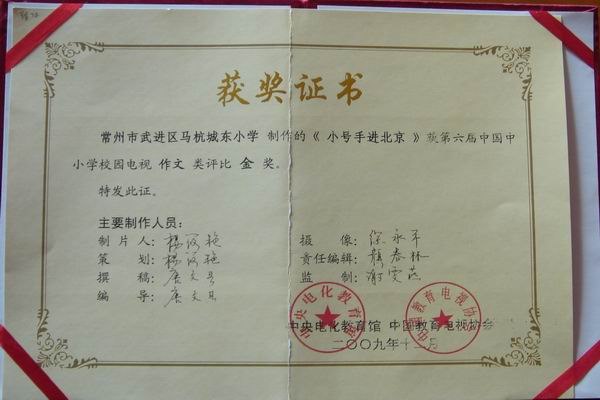 获奖证书
常州市武进区马杭城东小学 制作的《 小号手进北京 》获第六届中国中
小学校园电视 作文 类评比 金 奖。
特发此证。
主要制作人员：
制 片 人：杨
策 划：杨
撰 稿：唐文
编 导：唐文
摄 像：永
责任编辑：颜春林
监 制：谢雯燕
中央电化教育馆 中国教育电视协会
二〇〇九年十二月